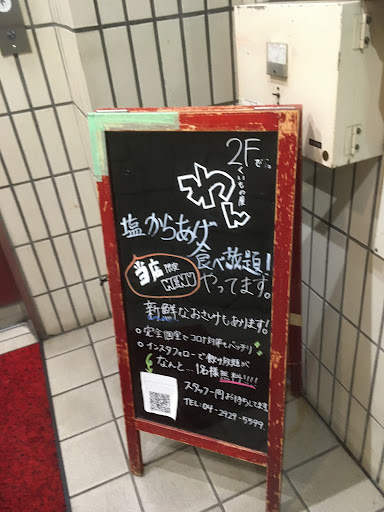 2Fです。
くいもの屋
わん
塩からあげ
食べ放題!
当店限定
MENU
やってます。
新鮮なおさけもあります!
○完全個室でコロナ対策もバッチリ
○インスタフォローで飲み放題が
なんと…1名様無料!!!!
スタッフ一同お待ちしてます
TEL:04-2929-5599